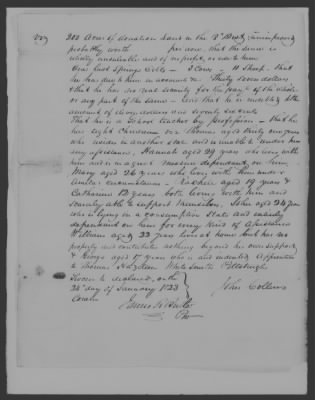 200 Acres of donation Land in the 3d Dist, unimproved
probably worth per acre, that the same is
wholly unsaleable and of no profit or rent to him
One last Springs Colts – 2 Cows – 11 Sheep – that
he has due to him in accounts &c Thirty seven dollars
& that he has no real security for the paymt of the whole
or any part of the same – And that he is indebted to the
amount of eleven dollars and seventy six cents
That he is a School Teacher by Profession – that he
has eight Children viz Thomas aged thirty one years
who resides in another state and is unable to render him
any assistance, Hannah aged 29 years who lives with
him and is in a great measure dependant on him –
Mary aged 26 years who lives with him under
similar circumstances – Rachel aged 19 years &
Catharine 12 years both living with him and
scarcely able to support themselves, John aged 24 years
who is lying in a consumptive State and entirely
dependant on him for every kind of assistance
William aged 22 years lives at home but has no
property and contributes nothing beyond his own support
& George aged 17 years who is an indented apprentice
to Thomas Hazleton White Smith Pittsburgh
Sworn to & declared, on the
24th day of January 1823
Coram
James R Butler
Pro
John Collins